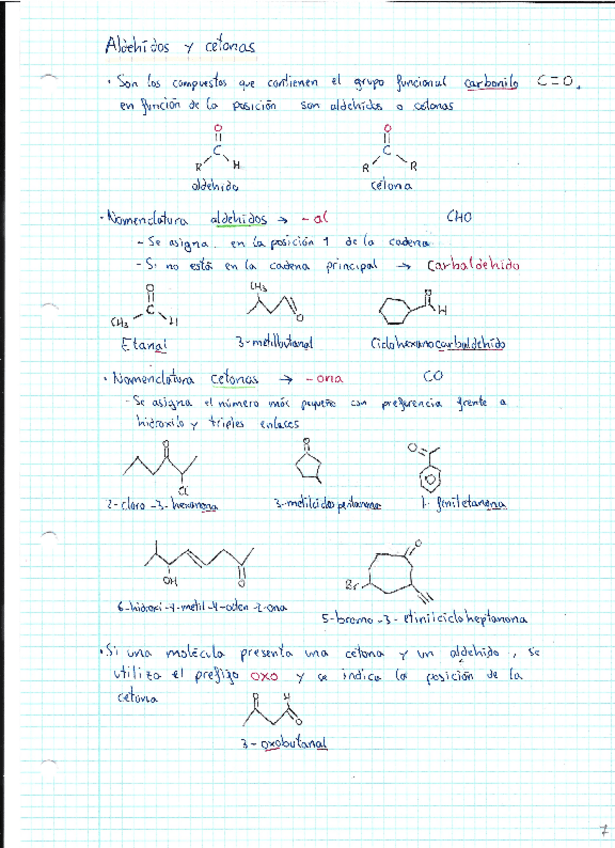 Aldehidos y cetonas
· Son los compuestos que contienen el grupo funcional carbonilo C=O,
en función de la posición son aldehidos o cetonas
O O
C C
R H R R
aldehido cetona
· Nomenclatura aldehidos → -al CHO
- Se asigna en la posición 1 de la cadena
- Si no está en la cadena principal → Carbaldehido
O CH3 O
C H
CH3 H O
Etanal 3-metilbutanal Ciclohexanocarbaldehido
· Nomenclatura cetonas → -ona CO
- Se asigna el número más pequeño con preferencia frente a
hidroxilo y triples enlaces
O O O
Cl
2-cloro-3-hexanona 3-metilciclopentanona 1-feniletanona
O
OH O Br
6-hidroxi-4-metil-4-octen-2-ona
5-bromo-3-etinilcicloheptanona
· Si una molécula presenta una cetona y un aldehido, se
utiliza el prefijo oxo y se indica la posición de la
cetona
O H
O
3-oxobutanal
7